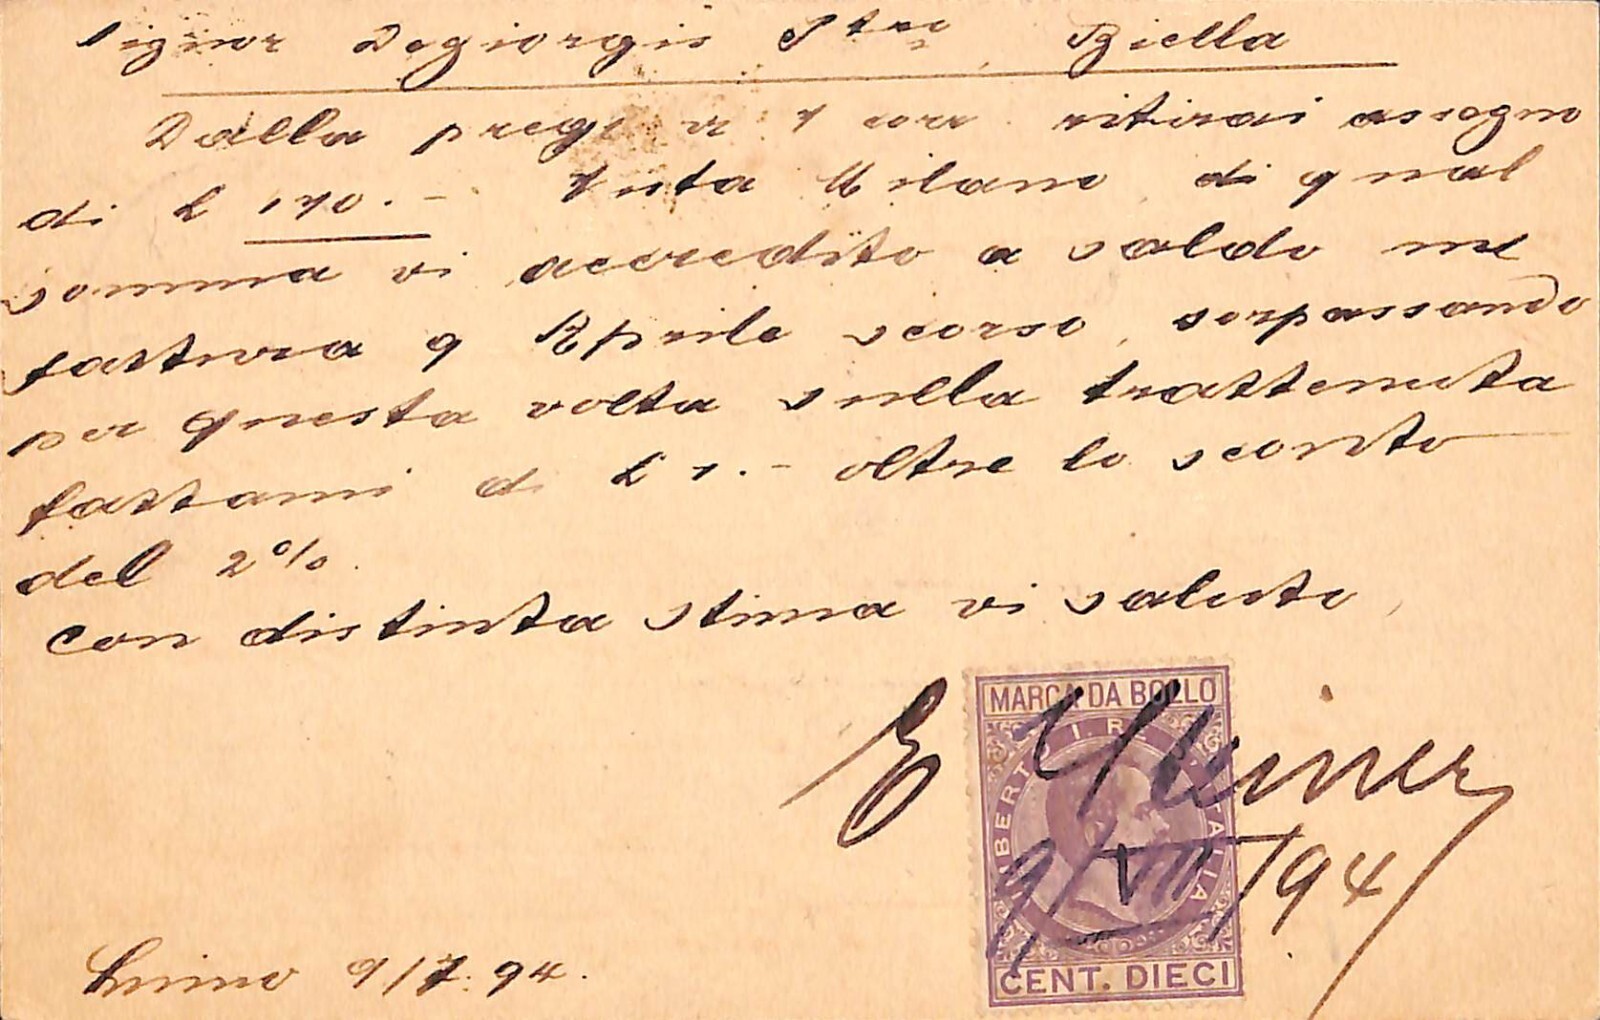 Signor Degiorgis Ptro, Biella
Dalla preg vs 7 corr. ritirai assegno
di L 170.- Milano di qual
somma vi accredito a saldo
fattura 9 Aprile scorso, sorpassando
per questa volta sulla trattenuta
fattami di L 1.- oltre lo sconto
del 2%.
Con distinta stima vi saluto,
MARCA DA BOLLO
UMBERTO I. RE D'ITALIA
E
9/VII/94
CENT. DIECI
9/7.94.